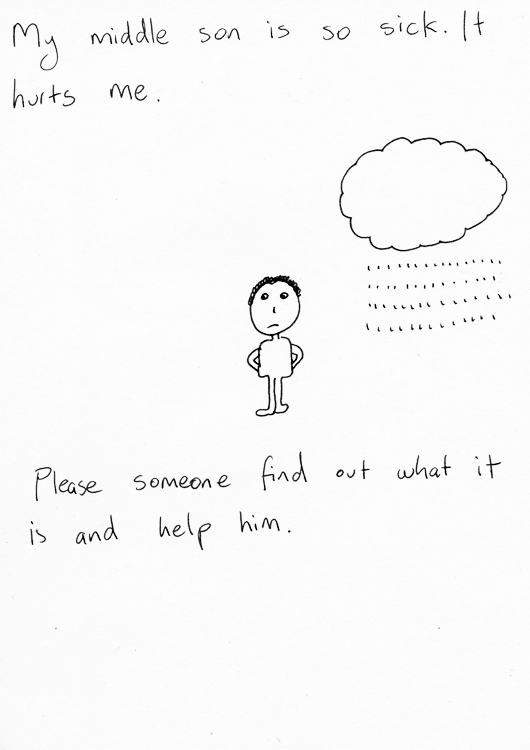 My middle son is so sick. It
hurts me.
Please someone find out what it
is and help him.